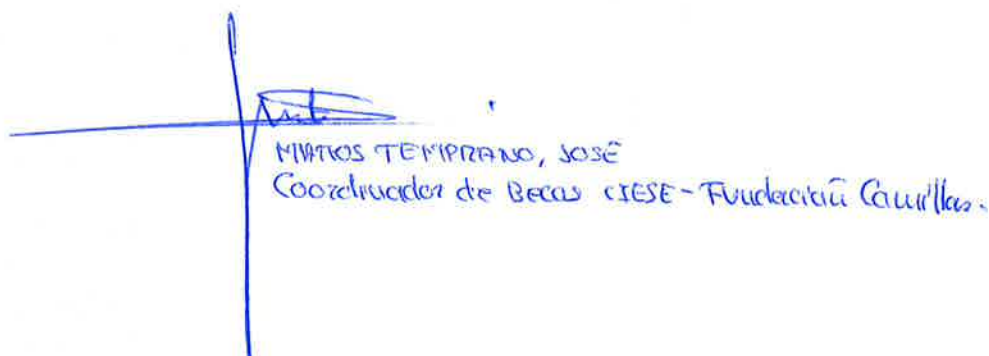 MATOS TEMPRANO, JOSÉ
Coordinador de Becas CIESE - Fundación Comillas.